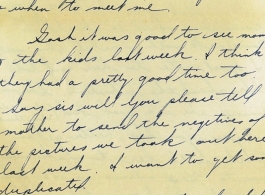 when to meet me.
Gosh it was good to see mom
the kids last week. I think
they had a pretty good time too
say sis will you please tell
mother to send the negitives of
the pictures we took out here
last week. I want to get som
duplicates.